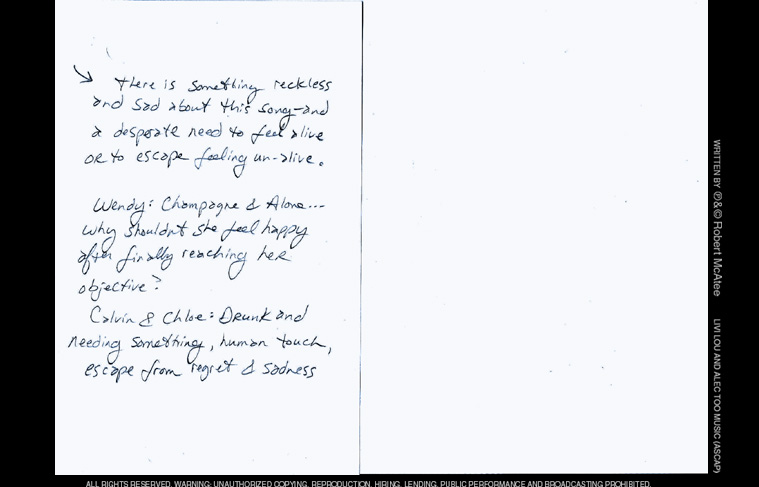 there is something reckless
and sad about this song–and
a desperate need to feel alive
or to escape feeling un-alive.
Wendy: Champagne & Alone...
why shouldn't she feel happy
after finally reaching her
objective?
Calvin & Chloe: Drunk and
needing something, human touch,
escape from regret & sadness
WRITTEN BY ℗ & © Robert McAtee
LIVI LOU AND ALEC TOO MUSIC (ASCAP)
ALL RIGHTS RESERVED. WARNING: UNAUTHORIZED COPYING, REPRODUCTION, HIRING, LENDING, PUBLIC PERFORMANCE AND BROADCASTING PROHIBITED.